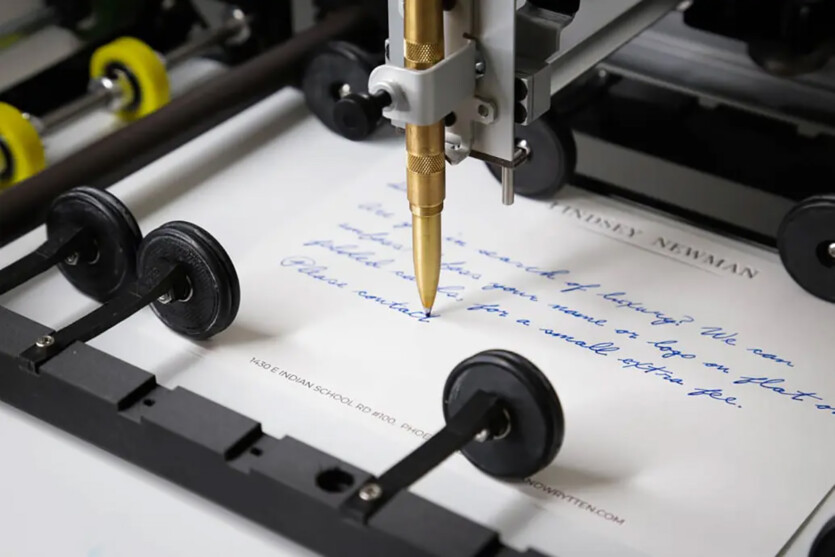 LINDSEY NEWMAN
Are in search of luxury? We can
your name or logo on flat or
for a small extra fee.
Please contact
1430 E INDIAN SCHOOL RD #100, PHOE
NDWRYTTEN.COM